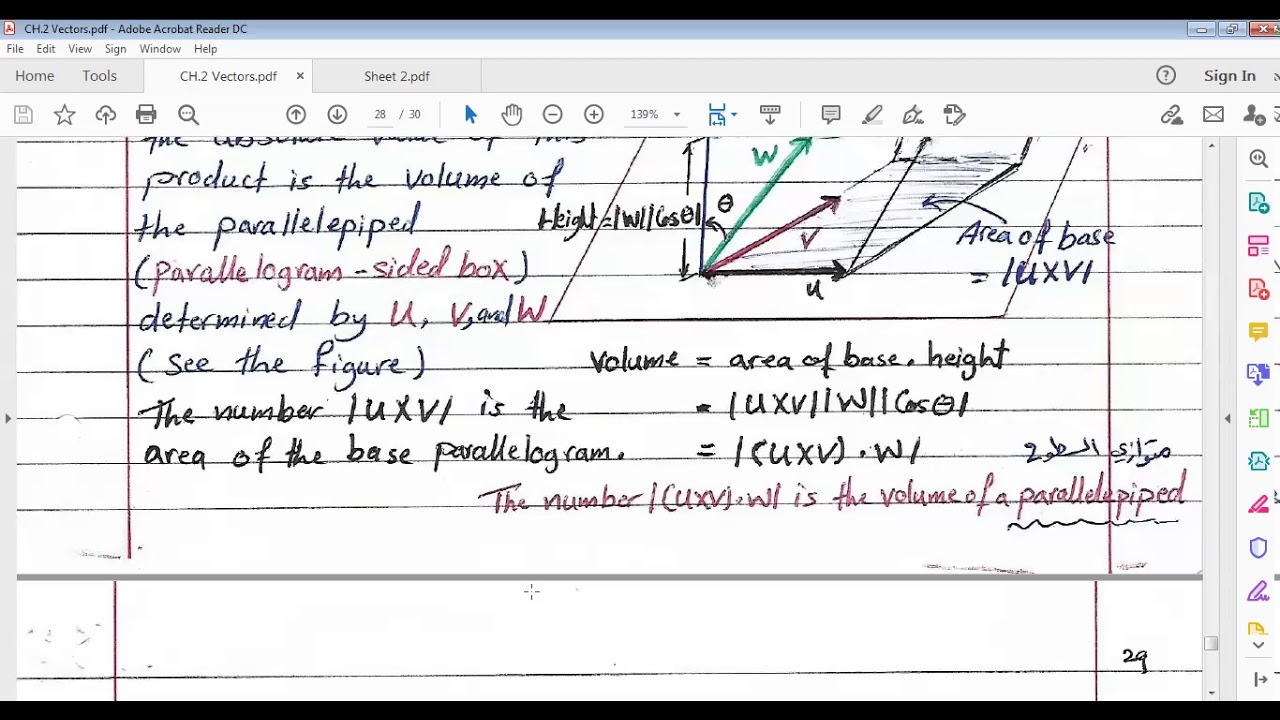 CH.2 Vectors.pdf - Adobe Acrobat Reader DC
File Edit View Sign Window Help
Home Tools CH.2 Vectors.pdf × Sheet 2.pdf Sign In
28 / 30 139%
the absolute value of this
product is the volume of
the parallelepiped
(parallelogram-sided box)
determined by U, V, and W
(see the figure)
The number |UXV| is the
area of the base parallelogram.
W
θ
Height=|W||Cosθ|
V
U
Area of base
= |UXV|
Volume = area of base . height
= |UXV||W||Cosθ|
= |(UXV).W|
متوازي السطوح
The number |(UXV).W| is the volume of a parallelepiped
29